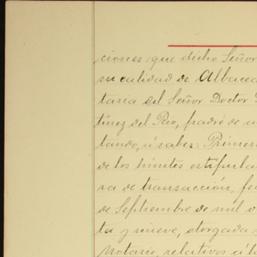 ciones que dicho Señor
su calidad de Albacea
tarea del Señor Doctor
tinez del Rio, padre de
tando, á saber: Primero
de los límites estipula
ra de transacción, fe
de Septiembre de mil o
ta y nueve, otorgada
Notario, relativos á l